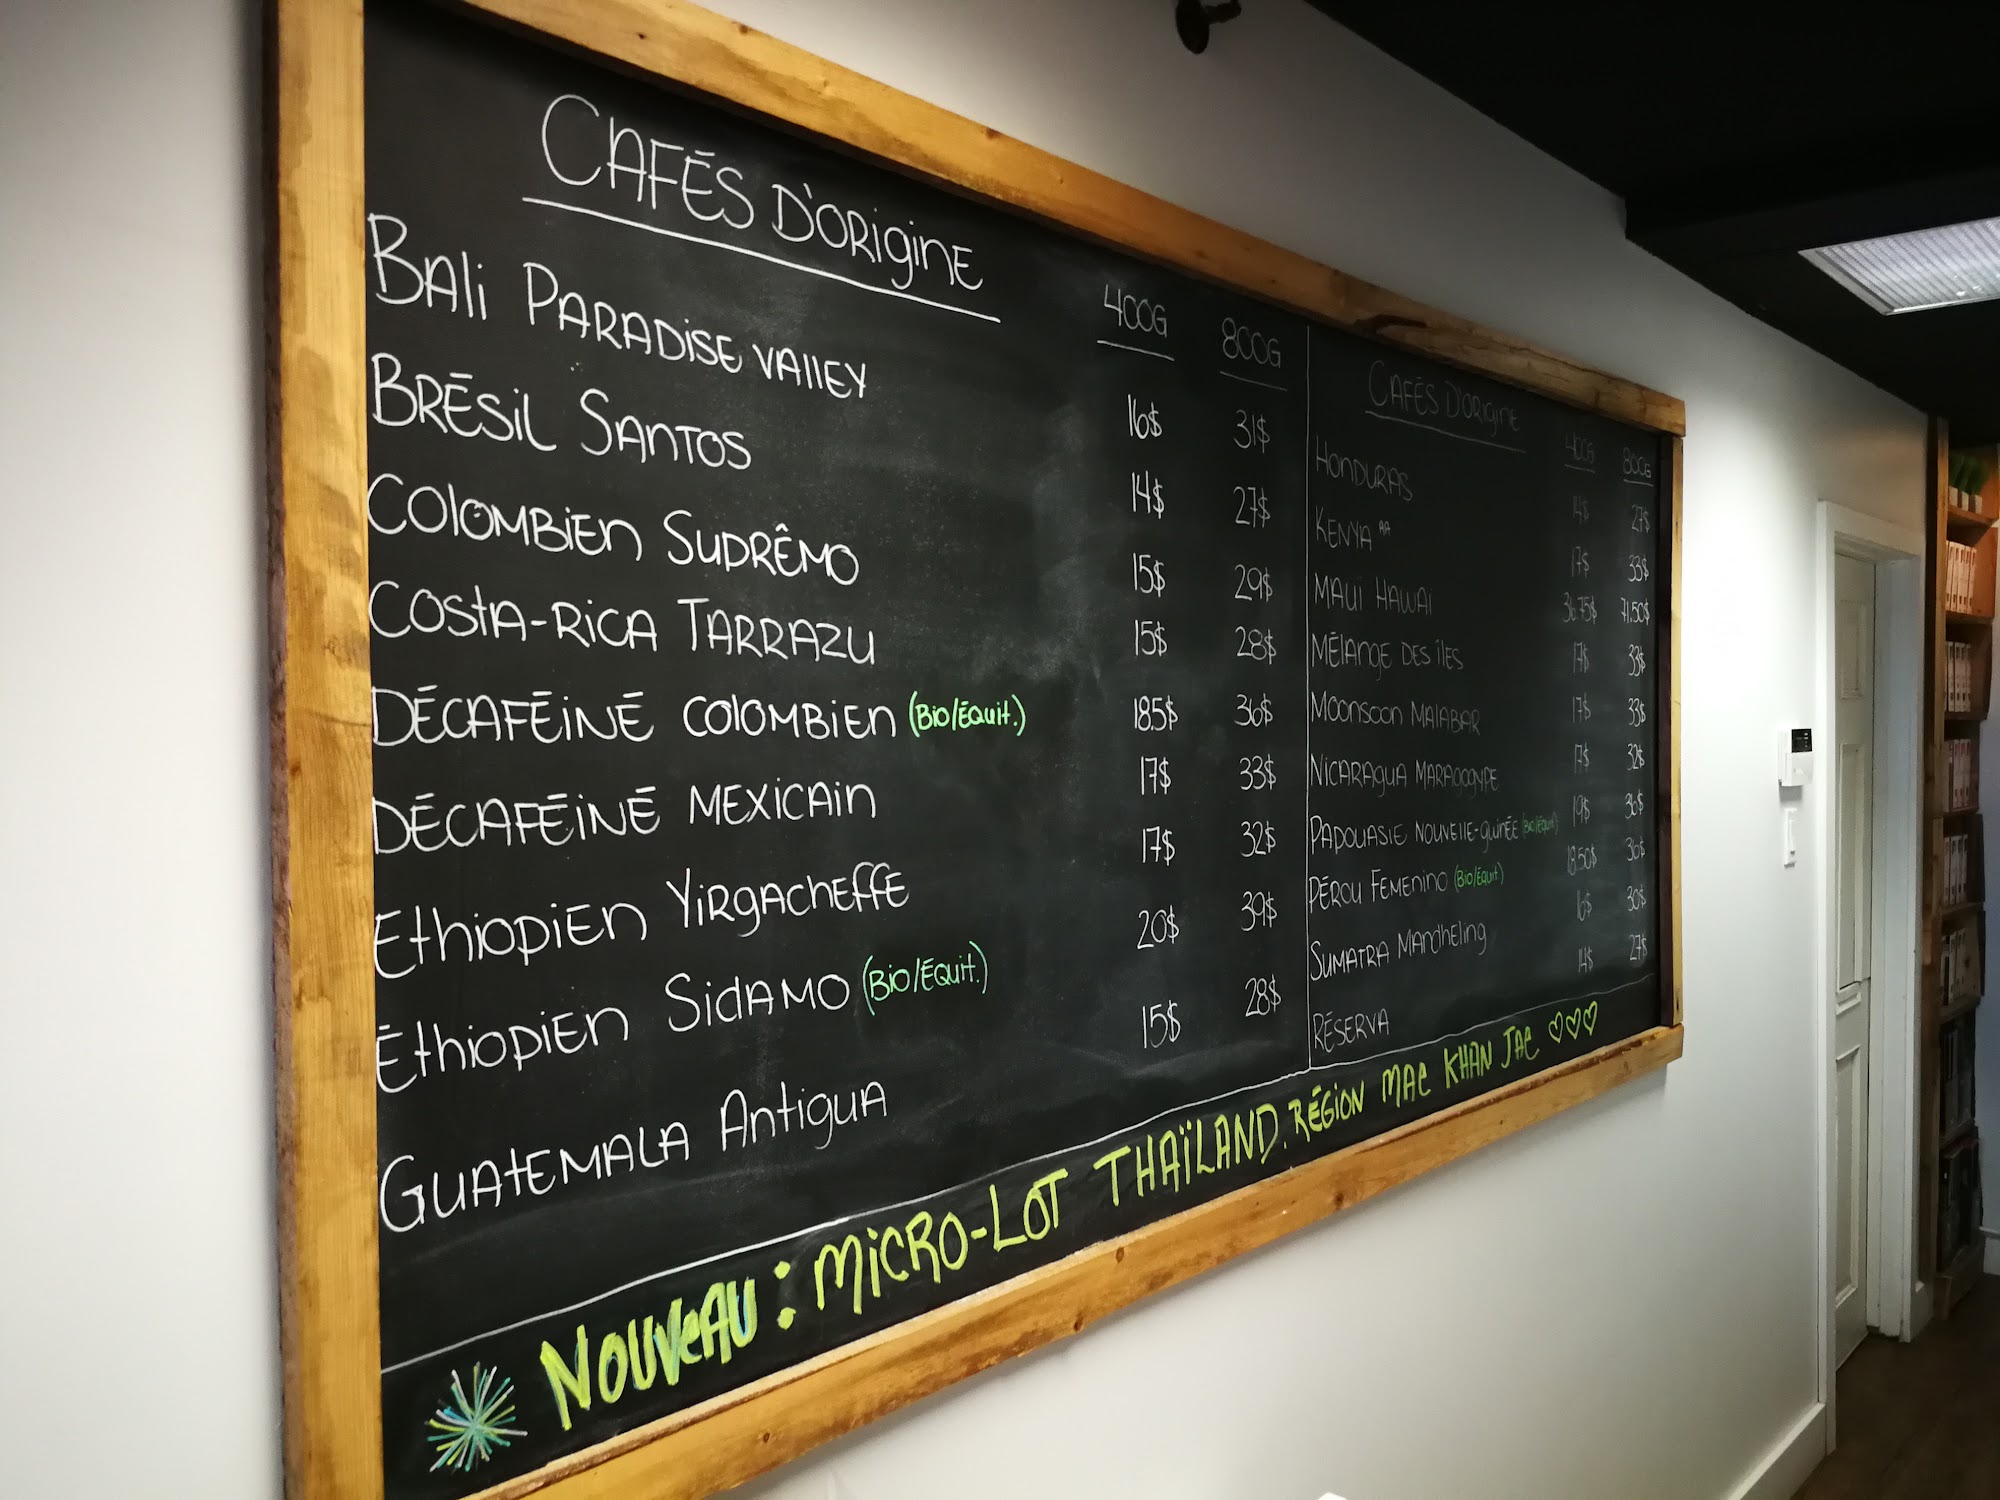 CAFÉS D'ORIGINE 400G 800G
BALI PARADISE VALLEY 16$ 31$
BRÉSIL SANTOS 14$ 27$
COLOMBIEN SUPRÊMO 15$ 29$
COSTA-RICA TARRAZU 15$ 28$
DÉCAFÉINÉ COLOMBIEN (BIO/ÉQUIT.) 18.5$ 36$
DÉCAFÉINÉ MEXICAIN 17$ 33$
ETHIOPIEN YIRGACHEFFE 17$ 32$
ÉTHIOPIEN SIDAMO (BIO/ÉQUIT.) 20$ 39$
GUATEMALA ANTIGUA 15$ 28$
CAFÉS D'ORIGINE 400G 800G
HONDURAS 14$ 27$
KENYA AA 17$ 33$
MAUI HAWAI 36.75$ 71.50$
MÉLANGE DES ÎLES 17$ 33$
MOONSOON MALABAR 17$ 33$
NICARAGUA MARAGOGYPE 17$ 32$
PAPOUASIE NOUVELLE-GUINÉE (BIO/ÉQUIT.) 19$ 36$
PÉROU FEMENINO (BIO/ÉQUIT.) 18.50$ 36$
SUMATRA MANDHELING 16$ 30$
RÉSERVA 14$ 27$
NOUVEAU : MICRO-LOT THAÏLAND. RÉGION MAE KHAN JAE ♡♡♡